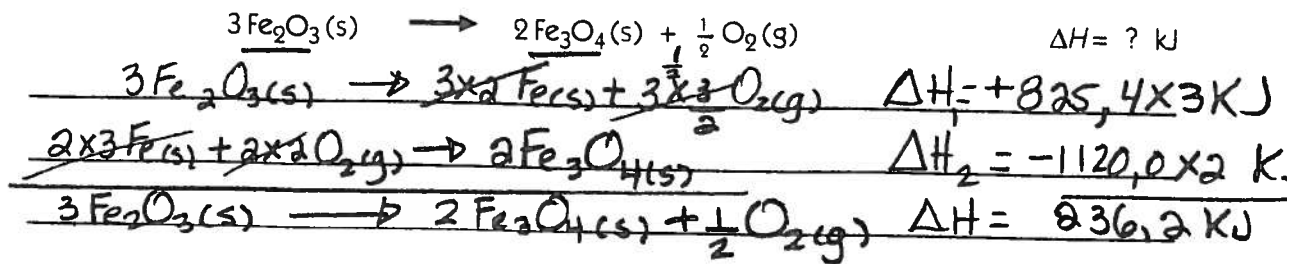 3Fe₂O₃(s) → 2Fe₃O₄(s) + ½ O₂(g) ΔH = ? kJ
3Fe₂O₃(s) → 3x2 Fe(s) + 3x3/2 O₂(g) ΔH₁ = +825,4x3KJ
2x3Fe(s) + 2x2O₂(g) → 2Fe₃O₄(s) ΔH₂ = -1120,0x2 K.
3Fe₂O₃(s) → 2Fe₃O₄(s) + ½ O₂(g) ΔH = 236,2 KJ